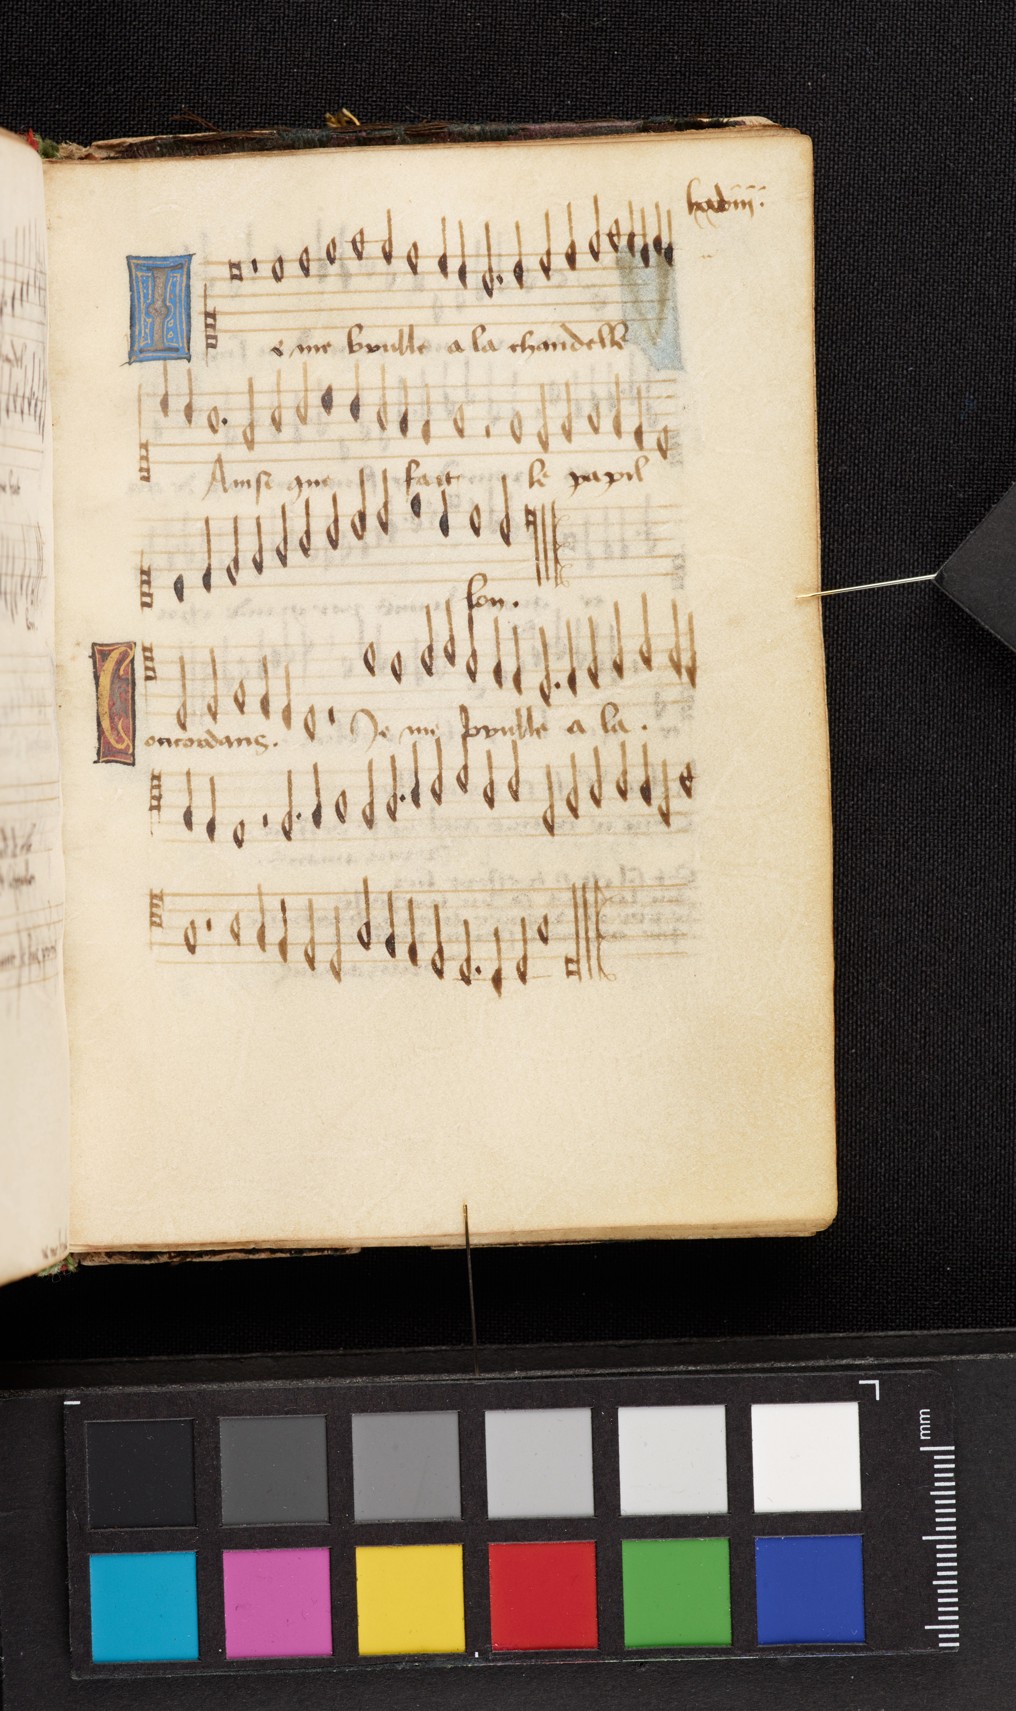 lxxviii.
Ie me brulle a la chandelle
Ainsi que fait le papil
lon.
Concordans. Je me brulle a la.
mm